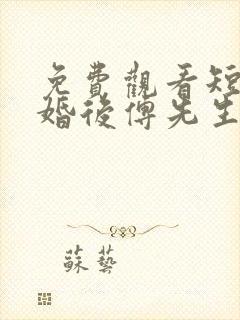 免費觀看短
婚後傅先生
蘇藝